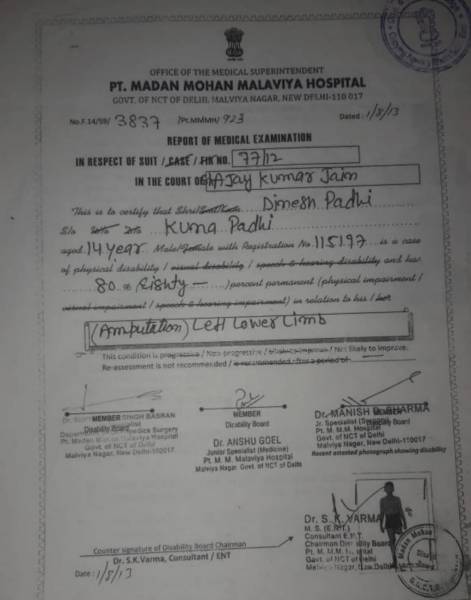 OFFICE OF THE MEDICAL SUPERINTENDENT
PT. MADAN MOHAN MALAVIYA HOSPITAL
GOVT. OF NCT OF DELHI, MALVIYA NAGAR, NEW DELHI-110 017
No.F.14/59/ 3837 /Pt.MMMH/ 923 Dated : 1/8/13
REPORT OF MEDICAL EXAMINATION
IN RESPECT OF SUIT / CASE / FIR NO. 77/12
IN THE COURT OF Ajay Kumar Jain
This is to certify that Shri/ Dinesh Padhi
S/o Kuma Padhi
aged 14 year Male/Female with Registration No 115197 is a case
of physical disability / visual disability / speech & hearing disability and has
80 % Eighty — percent permanent (physical impairment /
visual impairment / speech & hearing impairment) in relation to his / her
(Amputation) Left Lower Limb
This condition is progressive / Non-progressive / likely to improve / Not likely to improve.
Re-assessment is not recommended / recommended after a period of
MEMBER
Disability Board
Pt. Madan Mohan Malaviya Hospital
Govt. of NCT of Delhi
Malviya Nagar, New Delhi-110017
MEMBER
Disability Board
Dr. ANSHU GOEL
Junior Specialist (Medicine)
Pt. M. M. Malaviya Hospital
Malviya Nagar, Govt. of NCT of Delhi
Dr. MANISH SHARMA
Jr. Specialist
Pt. M. M. M. Hospital
Govt. of NCT of Delhi
Malviya Nagar, New Delhi-110017
Recent attested photograph showing disability
Dr. S. K. VARMA
M. S. (E.N.T.)
Consultant E.N.T.
Chairman Disability Board
Pt. M. M. M. Hospital
Govt. of NCT of Delhi
Malviya Nagar, New Delhi-110017
Counter signature of Disability Board Chairman
Dr. S.K.Varma, Consultant / ENT
Date : 1/8/13